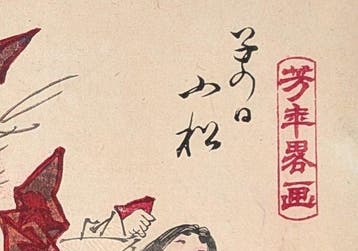 芳年畧画
子の日
小松